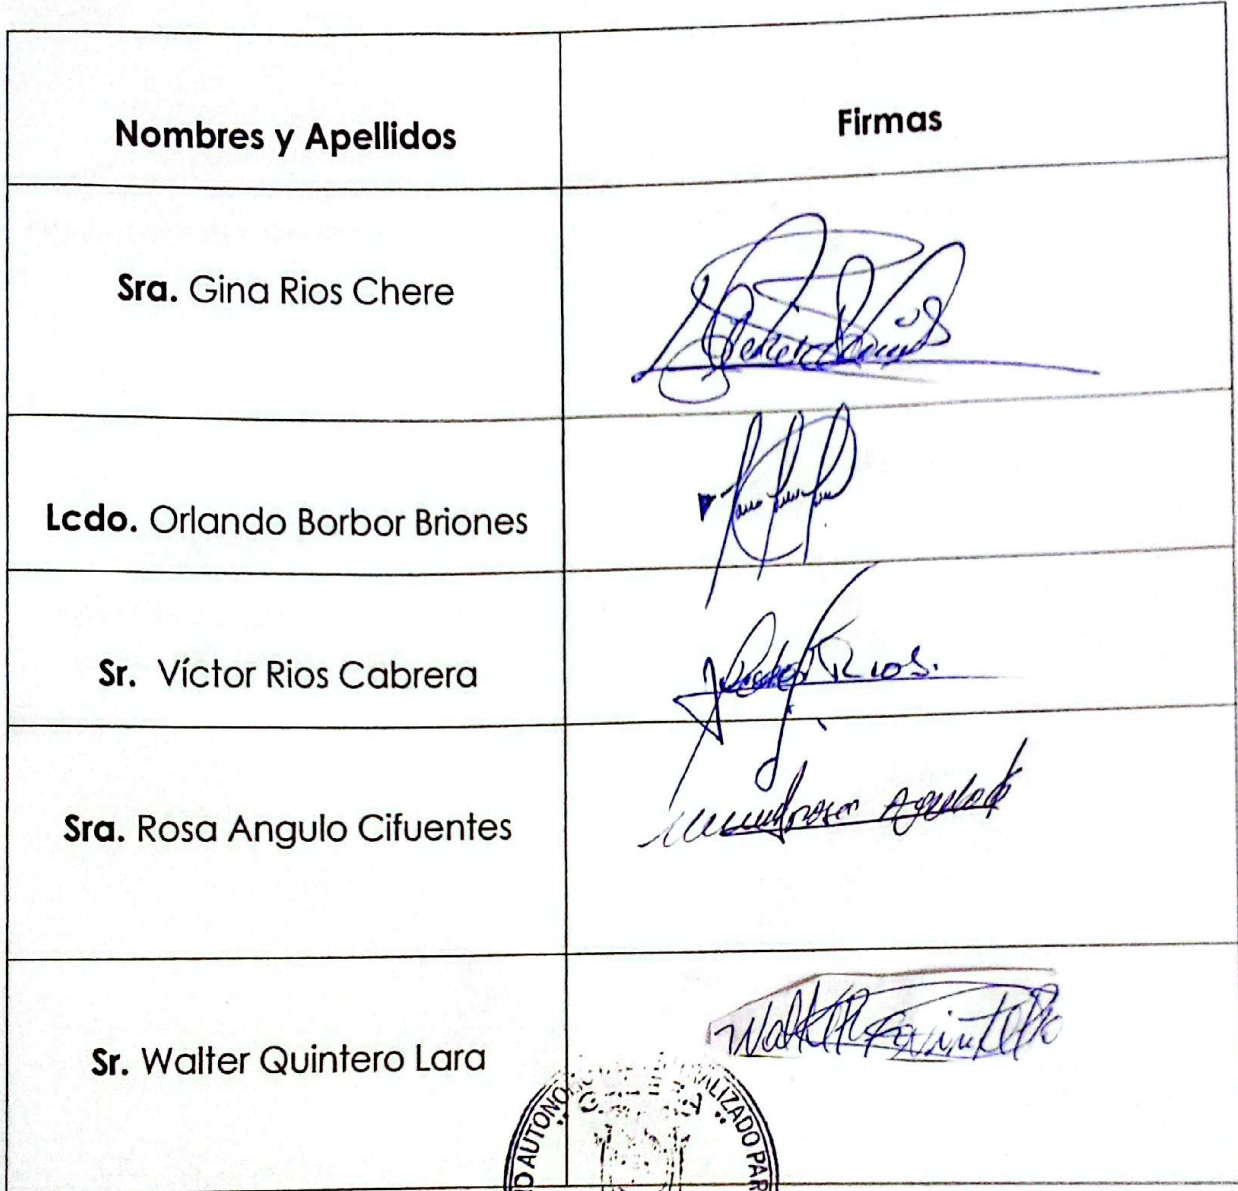 Nombres y Apellidos
Firmas
Sra. Gina Rios Chere
Lcdo. Orlando Borbor Briones
Sr. Víctor Rios Cabrera
Rios.
Sra. Rosa Angulo Cifuentes
Sr. Walter Quintero Lara
Walter Quintero